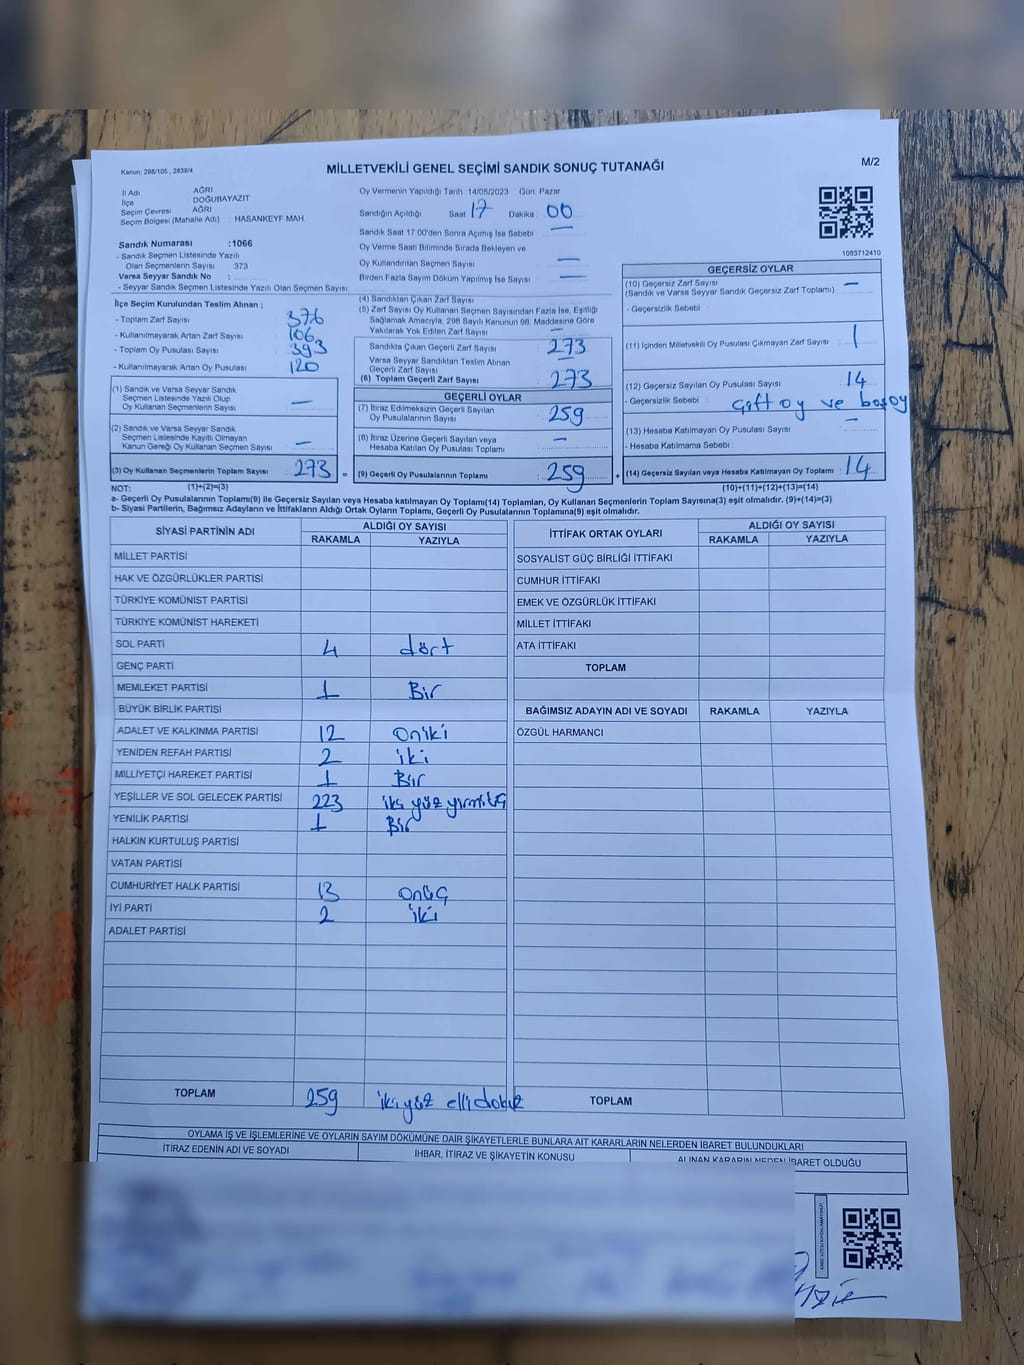 Kanun: 298/105 , 2839/4
MİLLETVEKİLİ GENEL SEÇİMİ SANDIK SONUÇ TUTANAĞI
M/2
İl Adı AĞRI
İlçe : DOĞUBAYAZIT
Seçim Çevresi AĞRI
Seçim Bölgesi (Mahalle Adı) : HASANKEYF MAH.
Oy Vermenin Yapıldığı Tarih :14/05/2023 Gün: Pazar
Sandığın Açıldığı Saat 17 Dakika : 00
Sandık Saat 17:00'den Sonra Açımış İse Sebebi —
Oy Verme Saati Bitiminde Sırada Bekleyen ve
Oy Kullandırılan Seçmen Sayısı —
Birden Fazla Sayım Döküm Yapılmış İse Sayısı —
Sandık Numarası :1066
- Sandık Seçmen Listesinde Yazılı
Olan Seçmenlerin Sayısı 373
Varsa Seyyar Sandık No :
- Seyyar Sandık Seçmen Listesinde Yazılı Olan Seçmen Sayısı
1083712410
İlçe Seçim Kurulundan Teslim Alınan ;
- Toplam Zarf Sayısı 376
- Kullanılmayarak Artan Zarf Sayısı 106
- Toplam Oy Pusulası Sayısı 393
- Kullanılmayarak Artan Oy Pusulası 120
(1) Sandık ve Varsa Seyyar Sandık
Seçmen Listesinde Yazılı Olup
Oy Kullanan Seçmenlerin Sayısı —
(2) Sandık ve Varsa Seyyar Sandık
Seçmen Listesinde Kayıtlı Olmayan
Kanun Gereği Oy Kullanan Seçmen Sayısı —
(3) Oy Kullanan Seçmenlerin Toplam Sayısı 273 =
(4) Sandıktan Çıkan Zarf Sayısı
(5) Zarf Sayısı Oy Kullanan Seçmen Sayısından Fazla İse, Eşitliği
Sağlamak Amacıyla, 298 Sayılı Kanunun 98. Maddesine Göre
Yakılarak Yok Edilen Zarf Sayısı —
Sandıkta Çıkan Geçerli Zarf Sayısı : 273
Varsa Seyyar Sandıktan Teslim Alınan
Geçerli Zarf Sayısı —
(6) Toplam Geçerli Zarf Sayısı : 273
GEÇERLİ OYLAR
(7) İtiraz Edilmeksizin Geçerli Sayılan
Oy Pusulalarının Sayısı : 259
(8) İtiraz Üzerine Geçerli Sayılan veya
Hesaba Katılan Oy Pusulaları Toplamı : —
(9) Geçerli Oy Pusulalarının Toplamı : 259 +
GEÇERSİZ OYLAR
(10) Geçersiz Zarf Sayısı —
(Sandık ve Varsa Seyyar Sandık Geçersiz Zarf Toplamı) :
- Geçersizlik Sebebi :
(11) İçinden Milletvekili Oy Pusulası Çıkmayan Zarf Sayısı 1
(12) Geçersiz Sayılan Oy Pusulası Sayısı : 14
- Geçersizlik Sebebi : Çift oy ve boş oy
(13) Hesaba Katılmayan Oy Pusulası Sayısı : —
- Hesaba Katılmama Sebebi :
(14) Geçersiz Sayılan veya Hesaba Katılmayan Oy Toplamı : 14
NOT: (1)+(2)=(3) (10)+(11)+(12)+(13)=(14)
a- Geçerli Oy Pusulalarının Toplamı(9) ile Geçersiz Sayılan veya Hesaba katılmayan Oy Toplamı(14) Toplamları, Oy Kullanan Seçmenlerin Toplam Sayısına(3) eşit olmalıdır. (9)+(14)=(3)
b- Siyasi Partilerin, Bağımsız Adayların ve İttifakların Aldığı Ortak Oyların Toplamı, Geçerli Oy Pusulalarının Toplamına(9) eşit olmalıdır.
SİYASİ PARTİNİN ADI ALDIĞI OY SAYISI
RAKAMLA YAZIYLA
MİLLET PARTİSİ
HAK VE ÖZGÜRLÜKLER PARTİSİ
TÜRKİYE KOMÜNİST PARTİSİ
TÜRKİYE KOMÜNİST HAREKETİ
SOL PARTİ 4 dört
GENÇ PARTİ
MEMLEKET PARTİSİ 1 Bir
BÜYÜK BİRLİK PARTİSİ
ADALET VE KALKINMA PARTİSİ 12 Oniki
YENİDEN REFAH PARTİSİ 2 iki
MİLLİYETÇİ HAREKET PARTİSİ 1 Bir
YEŞİLLER VE SOL GELECEK PARTİSİ 223 iki yüz yirmi üç
YENİLİK PARTİSİ 1 Bir
HALKIN KURTULUŞ PARTİSİ
VATAN PARTİSİ
CUMHURİYET HALK PARTİSİ 13 onüç
İYİ PARTİ 2 iki
ADALET PARTİSİ
TOPLAM 259 ikiyüz elli dokuz
İTTİFAK ORTAK OYLARI ALDIĞI OY SAYISI
RAKAMLA YAZIYLA
SOSYALİST GÜÇ BİRLİĞİ İTTİFAKI
CUMHUR İTTİFAKI
EMEK VE ÖZGÜRLÜK İTTİFAKI
MİLLET İTTİFAKI
ATA İTTİFAKI
TOPLAM
BAĞIMSIZ ADAYIN ADI VE SOYADI RAKAMLA YAZIYLA
ÖZGÜL HARMANCI
TOPLAM
OYLAMA İŞ VE İŞLEMLERİNE VE OYLARIN SAYIM DÖKÜMÜNE DAİR ŞİKAYETLERLE BUNLARA AİT KARARLARIN NELERDEN İBARET BULUNDUKLARI
İTİRAZ EDENİN ADI VE SOYADI İHBAR, İTİRAZ VE ŞİKAYETİN KONUSU ALINAN KARARIN NEDEN İBARET OLDUĞU